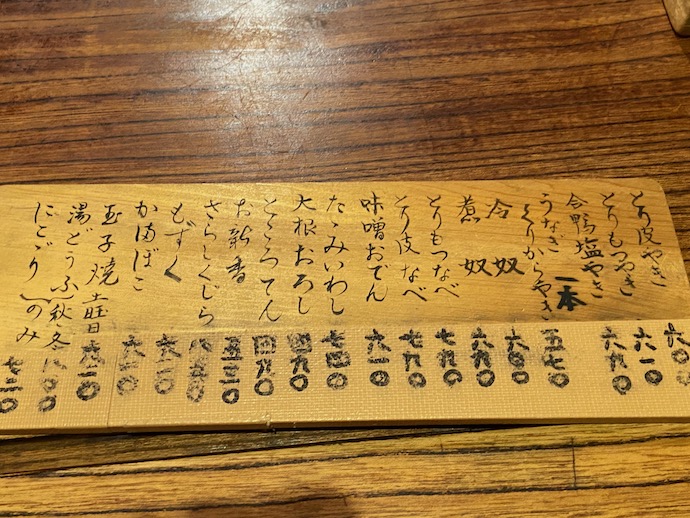 とり皮やき
とりもつやき 六一〇
合鴨塩やき 六九〇
うなぎ
くりからやき 一本 五七〇
冷奴
煮奴 六九〇
とりもつなべ 七九〇
とり皮なべ 七九〇
味噌おでん 六一〇
たゝみいわし 七四〇
大根おろし 四九〇
ところてん 四九〇
お新香 五三〇
さらしくじら 八五〇
もずく 六一〇
かまぼこ
玉子焼 土曜日 九一〇
湯どうふ 秋・冬 八〇〇
にこごり のみ 七三〇